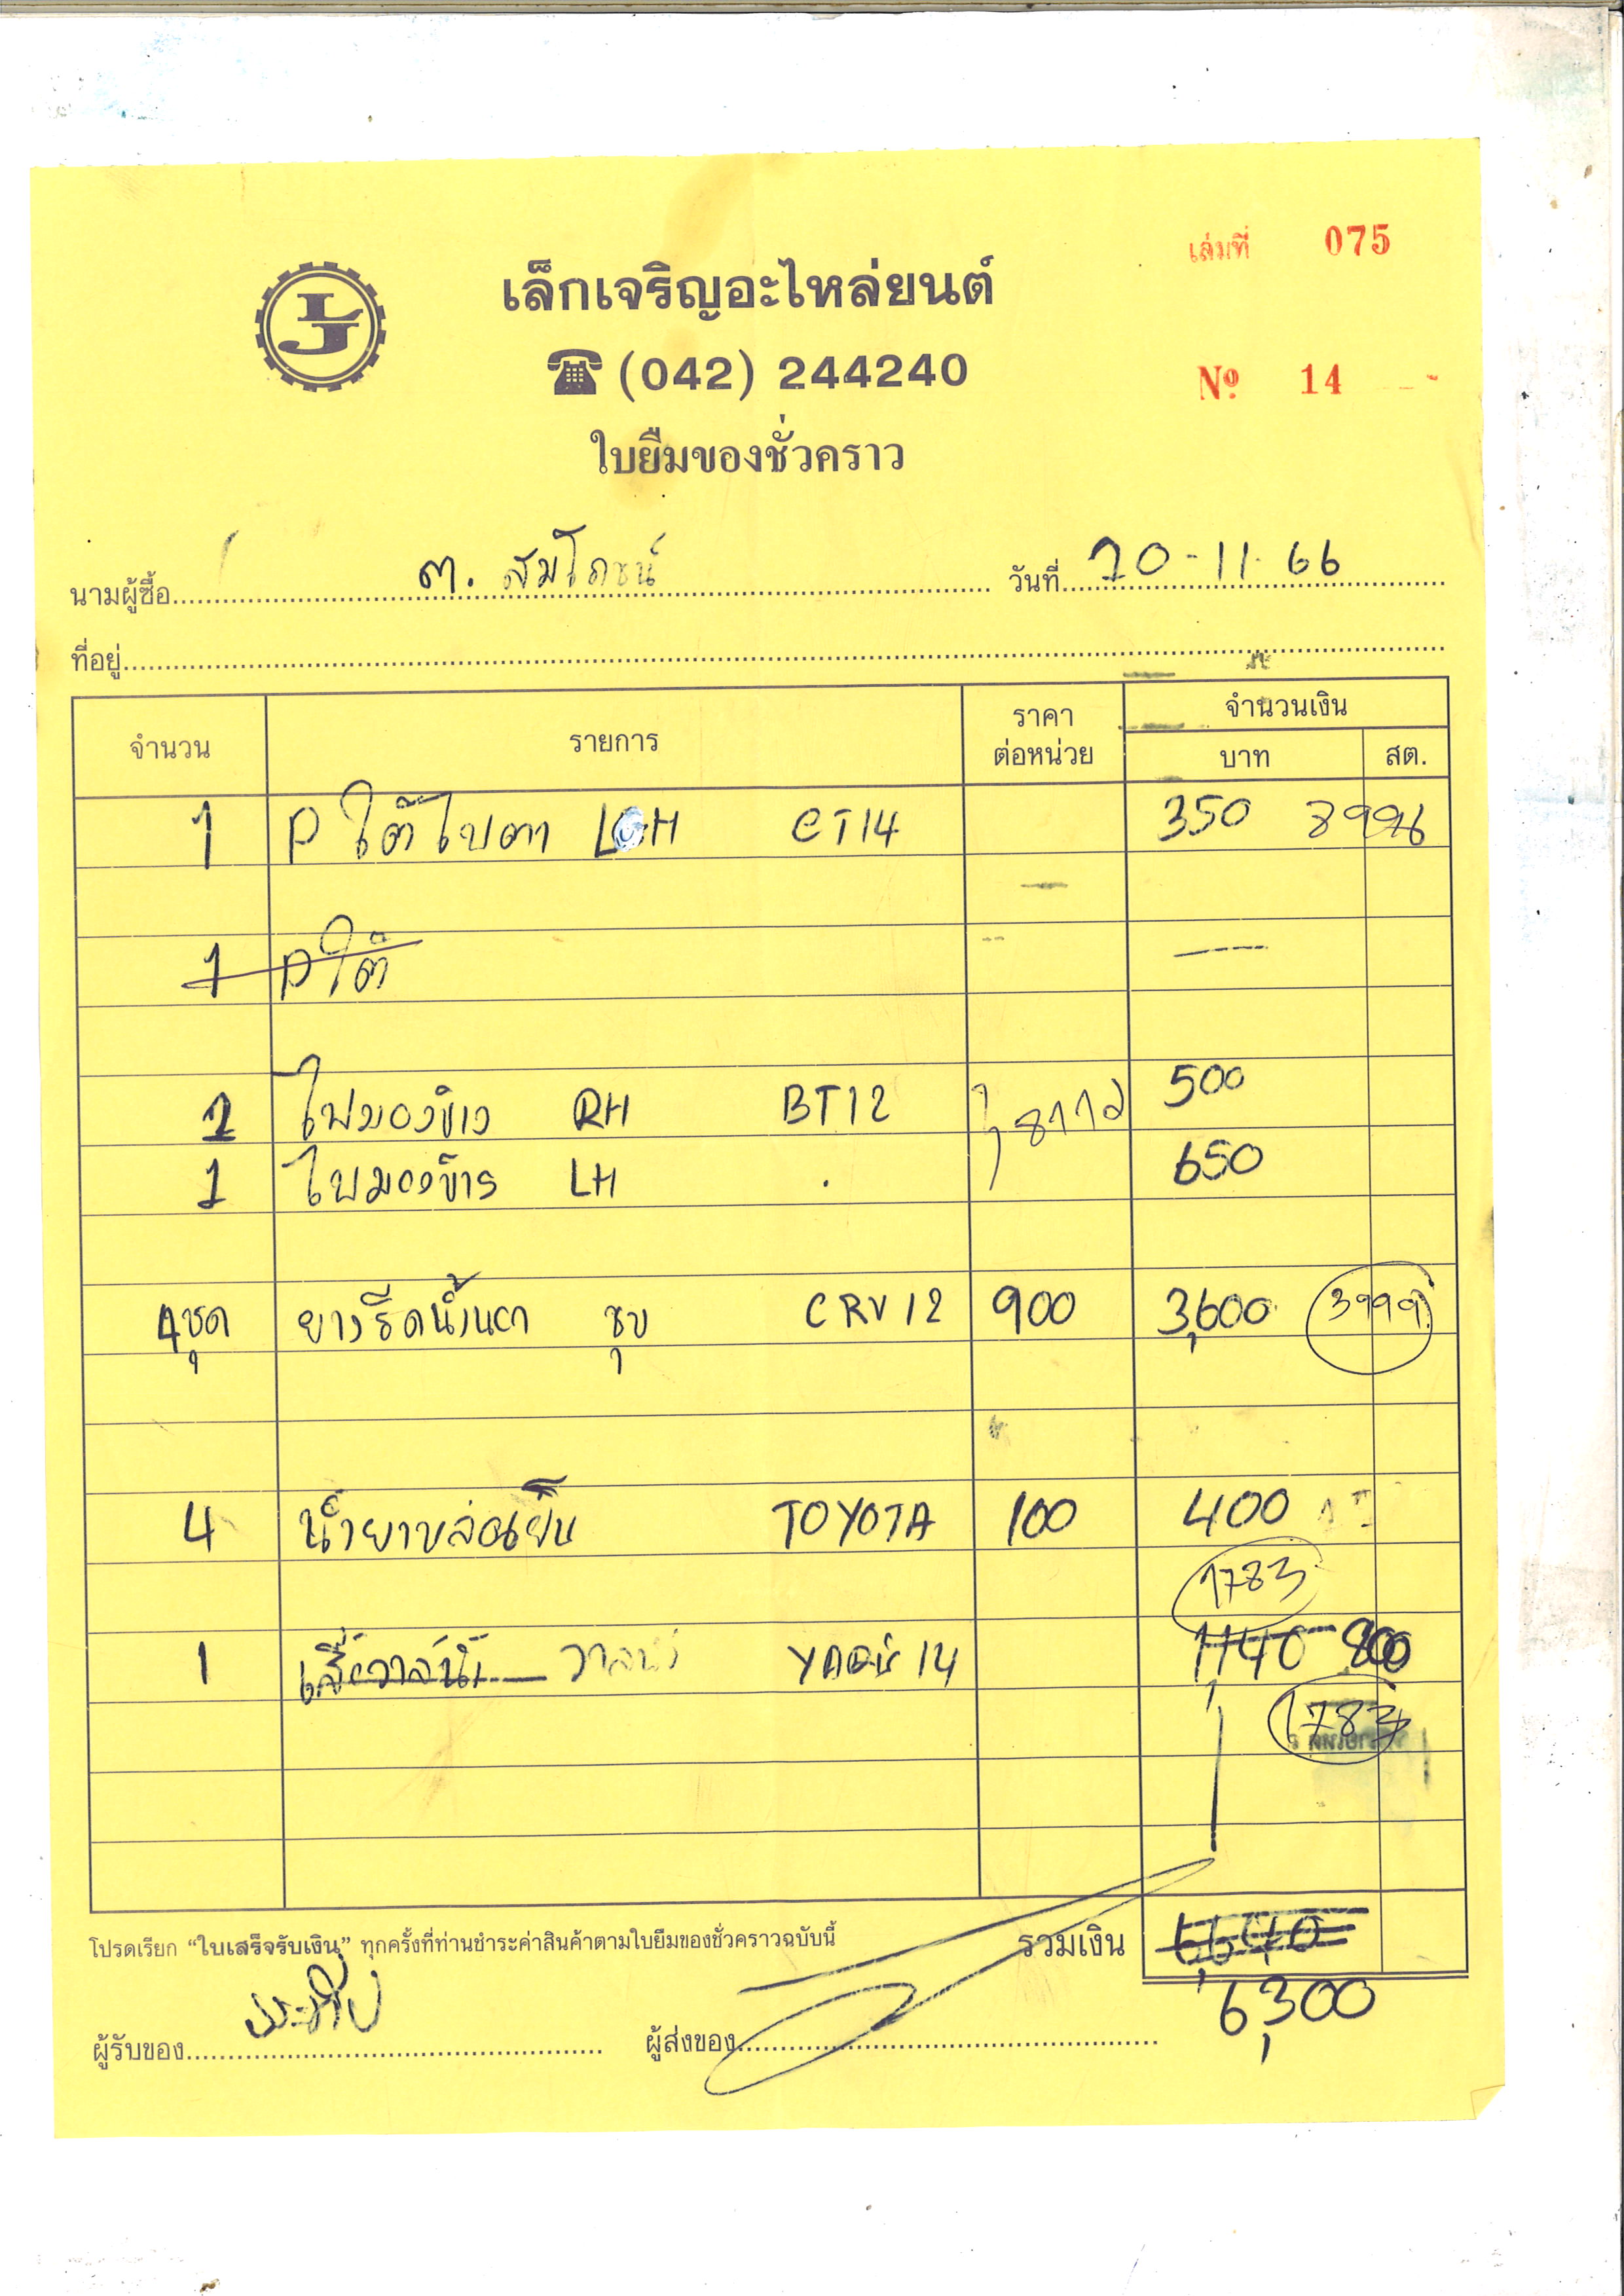 เล่มที่ 075
LJ
เล็กเจริญอะไหล่ยนต์
☎ (042) 244240
Nº 14
ใบยืมของชั่วคราว
นามผู้ซื้อ ต. สมโภชน์ วันที่ 20-11-66
ที่อยู่
จำนวน รายการ ราคาต่อหน่วย จำนวนเงิน
บาท สต.
1 P ใต้ไฟตา LH CT14 350
1 P ใต้
1 ไฟมองข้าง RH BT12 500
1 ไฟมองข้าง LH 650
4ชุด ยางรีดน้ำนอก ชุบ CRV12 900 3,600 3999
4 น้ำยาหล่อเย็น TOYOTA 100 400
1783
1 เสื้อวาล์วน้ำ วาล์วน้ำ YARIS 14 1,140 800
1783
โปรดเรียก “ใบเสร็จรับเงิน” ทุกครั้งที่ท่านชำระค่าสินค้าตามใบยืมของชั่วคราวฉบับนี้ รวมเงิน 6,640
6,300
ผู้รับของ ผู้ส่งของ